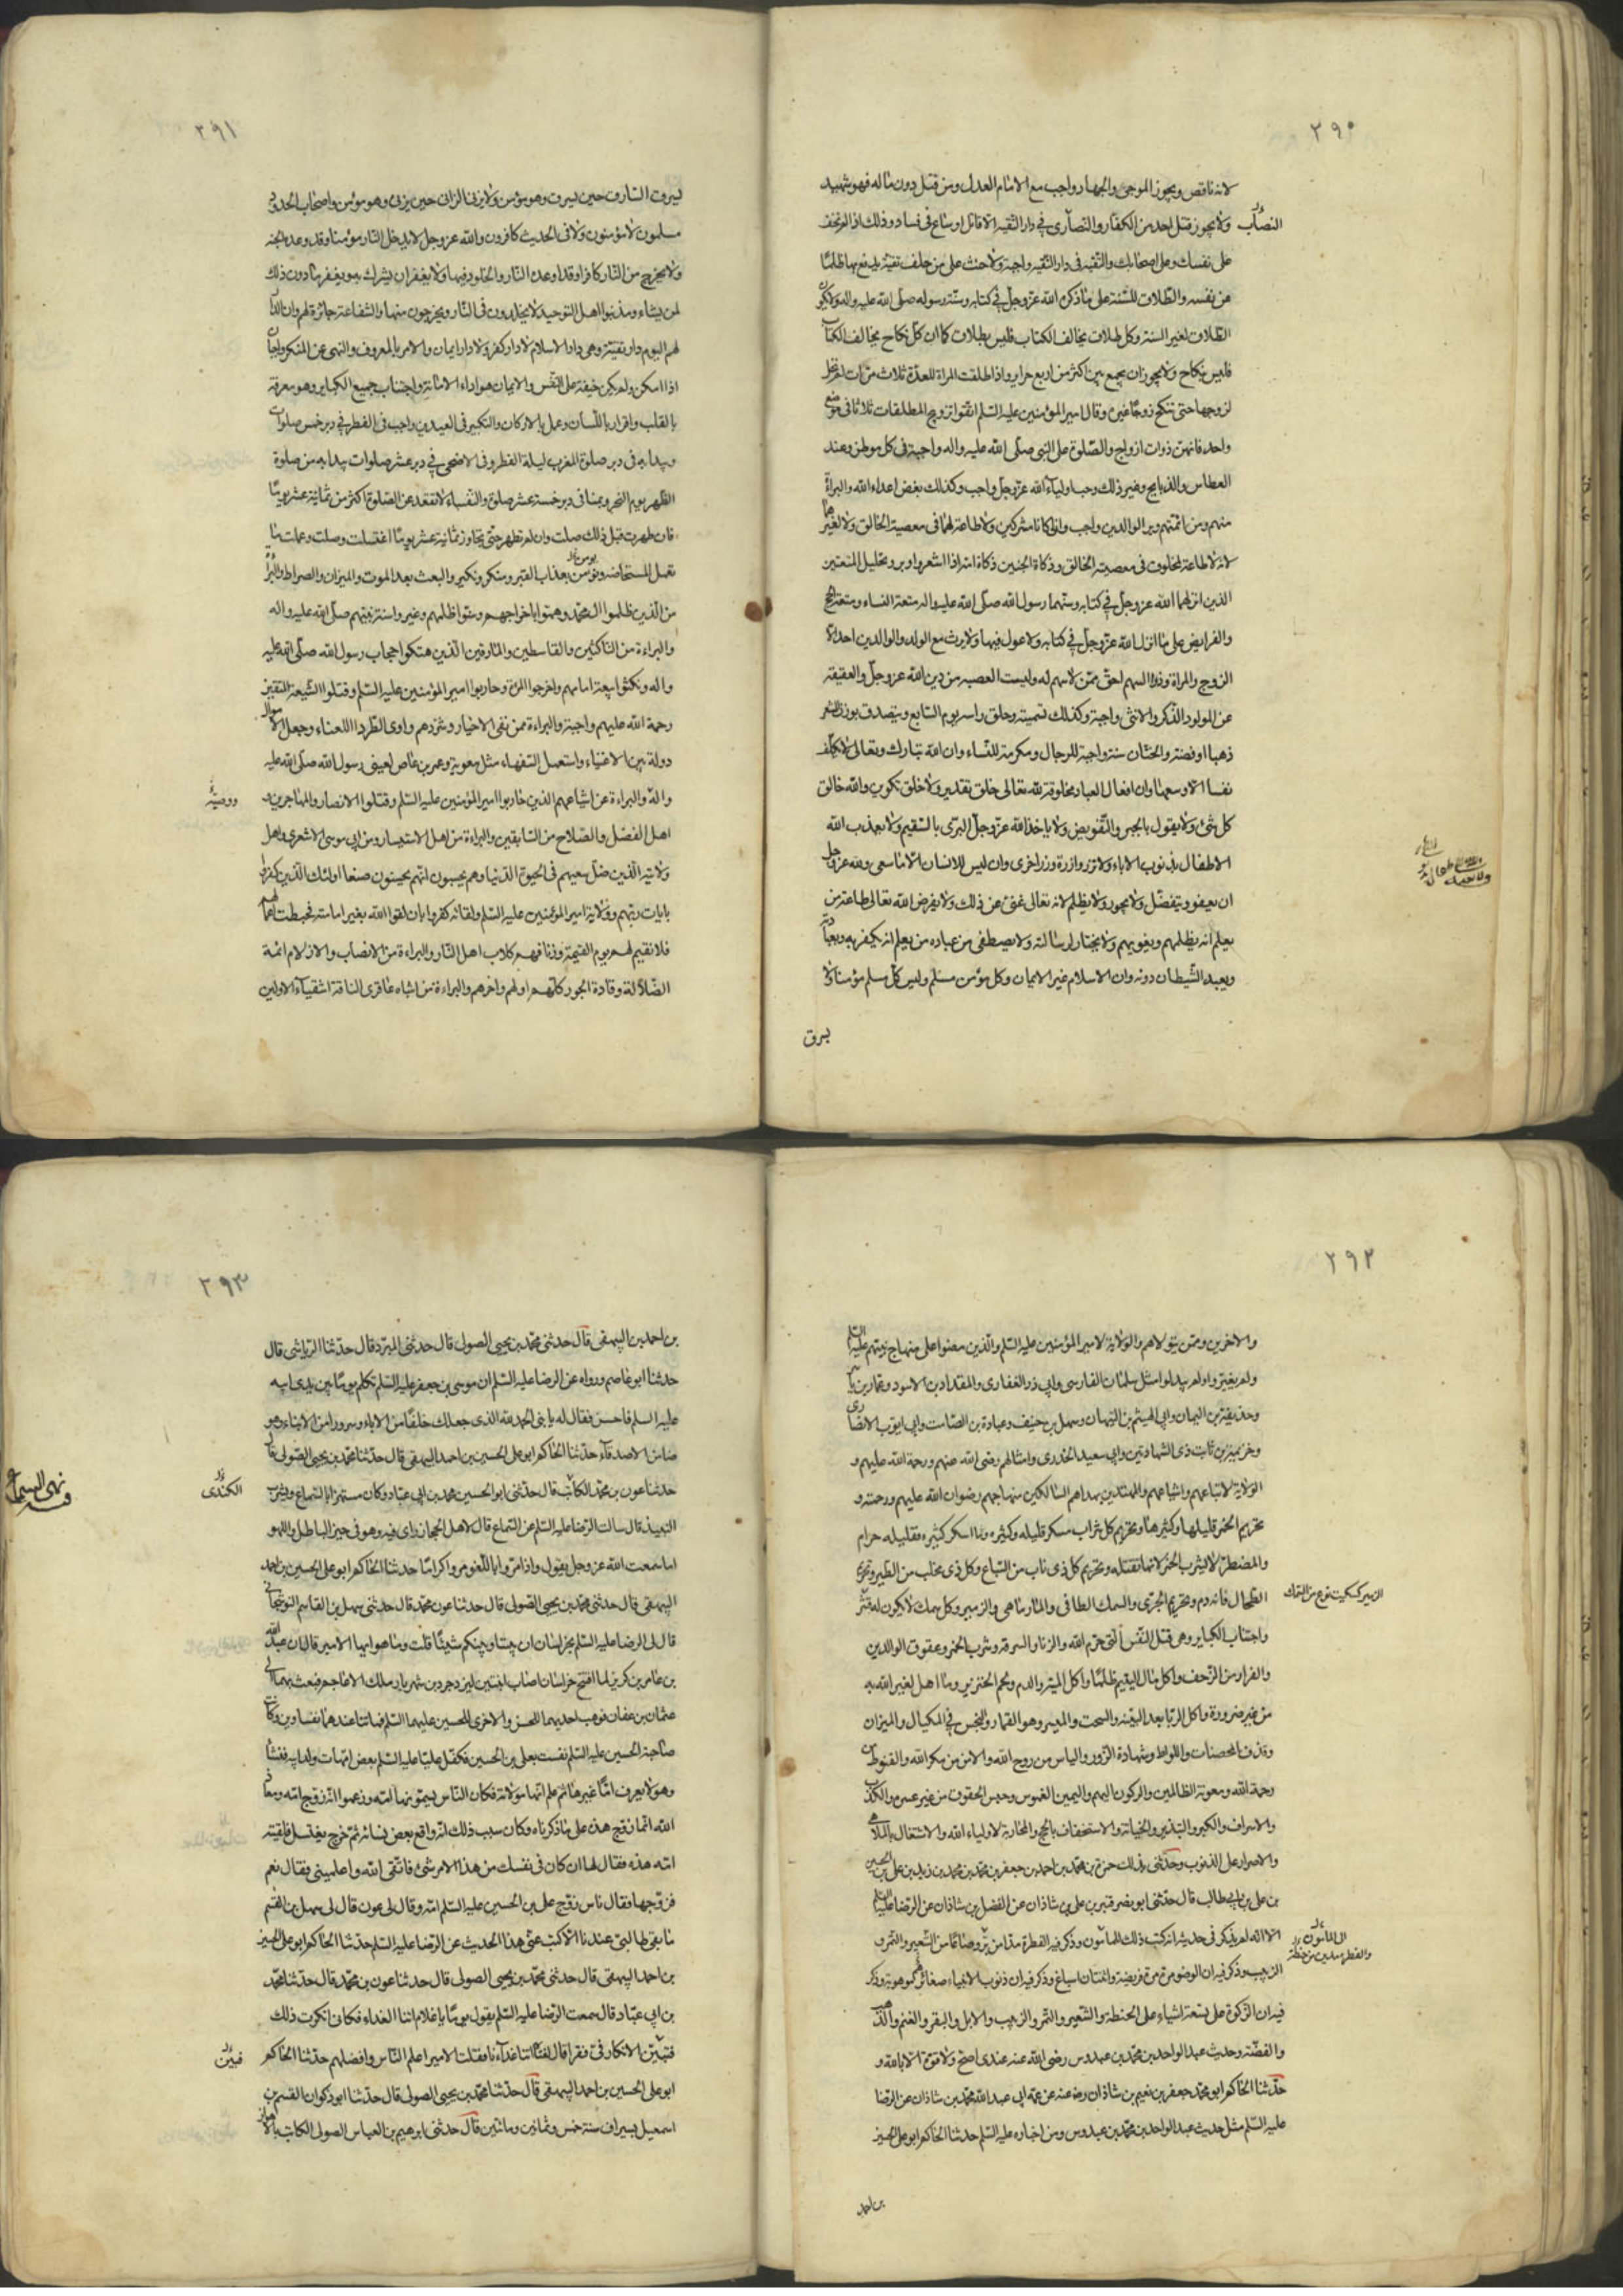 ٢٩٠
لانه ناقص ويجوز الموجى والجهاد واجب مع الامام العدل ومن قتل دون ماله فهو شهيد
النصاب
ولا يجوز قتل احد من الكفار والنصارى فى دار التقيه الا قاتل او ساع فى فساد وذلك اذا لم تخف
على نفسك وعلى اصحابك والتقيه فى دار التقيه واجبة ولا حنث على من حلف تقية يدفع بها ظلما
عن نفسه والطلاق للسنة على ما ذكره الله عز وجل فى كتابه وسنة رسوله صلى الله عليه واله ولا يكون
الطلاق لغير السنة وكل طلاق يخالف الكتاب فليس بطلاق كما ان كل نكاح يخالف الكتاب
فليس بنكاح ولا يجوز ان يجمع بين اكثر من اربع حراير واذا طلقت المراة للعدة ثلاث مرات لم تحل
لزوجها حتى تنكح زوجا غيره وقال امير المؤمنين عليه السلم اتقوا تزويج المطلقات ثلاثا فى موضع
واحد فانهن ذوات ازواج والصلوة على النبى صلى الله عليه واله واجبة فى كل موطن وعند
العطاس والذبايح وغير ذلك وحب اولياء الله عز وجل واجب وكذلك بغض اعداء الله والبراءة
منهم ومن ائمتهم وبر الوالدين واجب وان كانا مشركين ولا طاعة لهما فى معصية الخالق ولا لغيرهما
لانه لا طاعة لمخلوق فى معصية الخالق وذكاة الجنين ذكاة امه اذا اشعر واوبر وتحليل المتعتين
الذين انزلهما الله عز وجل فى كتابه وسنهما رسول الله صلى الله عليه واله متعة النساء ومتعة الحج
والفرايض على ما انزل الله عز وجل فى كتابه ولا عول فيها ولا يرث مع الولد والوالدين احد الا
الزوج والمراة وذو السهم احق ممن لا سهم له وليست العصبه من دين الله عز وجل والعقيقه
عن المولود الذكر والانثى واجبة وكذلك تسميته وحلق راسه يوم السابع ويتصدق بوزن الشعر
ذهبا او فضة والختان سنة واجبة للرجال ومكرمة للنساء وان الله تبارك وتعالى لا يكلف
نفسا الا وسعها وان افعال العباد مخلوقة لله تعالى خلق تقدير ولا خلق تكوين والله خالق
كل شئ ولا يقول بالجبر والتفويض ولا ياخذ الله عز وجل البرى بالسقيم ولا يعذب الله
الاطفال بذنوب الاباء ولا تزر وازرة وزر اخرى وان ليس للانسان الا ما سعى ولله عز وجل
ان يعفو ويتفضل ولا يجور ولا يظلم لانه تعالى غنى عن ذلك ولا يفرض الله تعالى طاعة من
يعلم انه يظلمهم ويغويهم ولا يختار لرسالته ولا يصطفى من عباده من يعلم انه يكفر به وبعبادته
ويعبد الشيطان دونه وان الاسلام غير الايمان وكل مؤمن مسلم وليس كل مسلم مؤمنا ولا
يسرق
٢٩١
يسرق السارق حين يسرق وهو مؤمن ولا يزنى الزانى حين يزنى وهو مؤمن واصحاب الحدود
مسلمون لا مؤمنون ولا فى الحديث كافرون والله عز وجل لا يدخل النار مؤمنا وقد وعده الجنه
ولا يخرج من النار كافرا وقد اوعده النار والخلود فيها ولا يغفر ان يشرك به ويغفر ما دون ذلك
لمن يشاء ومذنبوا اهل التوحيد لا يخلدون فى النار ويخرجون منها والشفاعة جائزة لهم وان الدار
لهم اليوم دار تقية وهى دار الاسلام لا دار كفر ولا دار ايمان والامر بالمعروف والنهى عن المنكر واجبان
اذا امكن ولم يكن خيفة على النفس والايمان هو اداء الامانة واجتناب جميع الكباير وهو معرفة
بالقلب واقرار باللسان وعمل بالاركان والتكبير فى العيدين واجب فى الفطر فى دبر خمس صلوات
ويبدا به فى دبر صلوة المغرب ليلة الفطر وفى الاضحى فى دبر عشر صلوات يبدا به من صلوة
الظهر يوم النحر وبمنا فى دبر خمسة عشر صلوة والنفساء لا تقعد عن الصلوة اكثر من ثمانية عشر يوما
فان طهرت قبل ذلك صلت وان لم تطهر حتى تجاوز ثمانية عشر يوما اغتسلت وصلت وعملت ما
تعمل المستحاضه ونؤمن بعذاب القبر ومنكر ونكير والبعث بعد الموت والميزان والصراط والبراءة
من الذين ظلموا ال محمد وهموا باخراجهم وسنوا ظلمهم وغيروا سنة نبيهم صلى الله عليه واله
والبراءة من الناكثين والقاسطين والمارقين الذين هتكوا حجاب رسول الله صلى الله عليه
واله ونكثوا بيعة امامهم واخرجوا المراة وحاربوا امير المؤمنين عليه السلم وقتلوا الشيعة المتقين
رحمة الله عليهم واجبة والبراءة ممن نفى الاخيار وشردهم واوى الطرداء اللعناء وجعل الاموال
دولة بين الاغنياء واستعمل السفهاء مثل معوية وعمر بن عاص لعينى رسول الله صلى الله عليه
واله والبراءة من اشياعهم الذين حاربوا امير المؤمنين عليه السلم وقتلوا الانصار والمهاجرين و
اهل الفضل والصلاح من السابقين والبراءة من اهل الاستيثار ومن ابى موسى الاشعرى واهل
ولايته الذين ضل سعيهم فى الحيوة الدنيا وهم يحسبون انهم يحسنون صنعا اولئك الذين كفروا
بايات ربهم وولاية امير المؤمنين عليه السلم ولقائه كفروا بان لقوا الله بغير امامته فحبطت اعمالهم
فلا نقيم لهم يوم القيمة وزنا فهم كلاب اهل النار والبراءة من الانصاب والازلام ائمة
الضلالة وقادة الجور كلهم اولهم واخرهم والبراءة من اشباه عاقرى الناقة اشقياء الاولين
٢٩٢
والاخرين وممن يتولاهم والولاية لامير المؤمنين عليه السلم والذين مضوا على منهاج نبيهم عليه السلم
ولم يغيروا ولم يبدلوا مثل سلمان الفارسى وابى ذر الغفارى والمقداد بن الاسود وعمار بن ياسر
وحذيفة بن اليمان وابى الهيثم بن التيهان وسهل بن حنيف وعبادة بن الصامت وابى ايوب الانصارى
وخزيمة بن ثابت ذى الشهادتين وابى سعيد الخدرى وامثالهم رضى الله عنهم ورحمة الله عليهم و
الولاية لاتباعهم واشياعهم والمهتدين بهداهم السالكين منهاجهم رضوان الله عليهم ورحمته و
تحريم الخمر قليلها وكثيرها وتحريم كل شراب مسكر قليله وكثيره وما اسكر كثيره فقليله حرام
والمضطر لا يشرب الخمر لانها تقتله وتحريم كل ذى ناب من السباع وكل ذى مخلب من الطير وتحريم
الطحال فانه دم وتحريم الجرى والسمك الطافى والمارماهى والزمير وكل سمك لا يكون له قشر
الزمير كسكيت نوع من السمك
واجتناب الكباير وهى قتل النفس التى حرم الله والزنا والسرقه وشرب الخمر وعقوق الوالدين
والفرار من الزحف واكل مال اليتيم ظلما واكل الميتة والدم ولحم الخنزير وما اهل لغير الله به
من غير ضرورة واكل الربا بعد البينه والسحت والميسر وهو القمار والبخس فى المكيال والميزان
وقذف المحصنات واللواط وشهادة الزور والياس من روح الله والامن من مكر الله والقنوط من
رحمة الله ومعونة الظالمين والركون اليهم واليمين الغموس وحبس الحقوق من غير عسر والكذب
والاسراف والكبر والتبذير والخيانة والاستخفاف بالحج والمحاربة لاولياء الله والاشتغال بالملاهى
والاصرار على الذنوب وحدثنى بذلك حمزة بن محمد بن احمد بن جعفر بن محمد بن زيد بن على بن الحسين
بن على بن ابى طالب قال حدثنى ابو نصر قنبر بن على بن شاذان عن الفضل بن شاذان عن الرضا عليه السلم
الا انه لم يذكر فى حديثه انه كتب ذلك للمامون وذكر فيه الفطرة مدا من بر وصاعا من الشعير والتمر و
الزبيب وذكر فيه ان الوضو مرة مرة فريضة واثنتان اسباغ وذكر فيه ان ذنوب الانبياء صغائرهم موهوبة وذكر
فيه ان الزكوة على تسعة اشياء على الحنطة والشعير والتمر والزبيب والابل والبقر والغنم والذهب
والفضة وحديث عبد الواحد بن محمد بن عبدوس رضى الله عنه عندى اصح ولا قوة الا بالله و
حدثنا الحاكم ابو محمد جعفر بن نعيم بن شاذان رضه عنه عن عمه ابى عبد الله محمد بن شاذان عن الرضا
عليه السلم مثل حديث عبد الواحد بن محمد بن عبدوس ومن اخباره عليه السلم حدثنا الحاكم ابو على الحسين
بن احمد
٢٩٣
بن احمد بن البيهقى قال حدثنى محمد بن يحيى الصولى قال حدثنى المبرد قال حدثنا الرياشى قال
حدثنا ابو عاصم ورواه عن الرضا عليه السلم ان موسى بن جعفر عليه السلم تكلم يوما بين يدى ابيه
عليه السلم فاحسن فقال له يا بنى الحمد لله الذى جعلك خلفا من الاباء وسرورا من الابناء وعو
ضا من الاصدقاء حدثنا الحاكم ابو على الحسين بن احمد البيهقى قال حدثنا محمد بن يحيى الصولى قال
حدثنا عون بن محمد الكاتب قال حدثنى ابو الحسين محمد بن ابى عباد وكان مستهترا بالسماع وشرب
الكندى
النبيذ قال سالت الرضا عليه السلم عن السماع قال لاهل الحجاز راى فيه وهو فى حيز الباطل واللهو
اما سمعت الله عز وجل يقول واذا مروا باللغو مروا كراما حدثنا الحاكم ابو على الحسين بن احمد
البيهقى قال حدثنى محمد بن يحيى الصولى قال حدثنا عون محمد قال حدثنى سهل بن القاسم النوشجانى
قال لى الرضا عليه السلم بخراسان ان بيننا وبينكم شيئا قلت وما هو ايها الامير قال ان عبد الله
بن عامر بن كريز لما افتتح خراسان اصاب ابنتين ليزدجرد بن شهريار ملك الاعاجم فبعث بهما الى
عثمان بن عفان فوهب احديهما للحسن والاخرى للحسين عليهما السلم فماتتا عندهما نفساوين وكانت
صاحبة الحسين عليه السلم نفست بعلى بن الحسين فكفل عليا عليه السلم بعض امهات ولد ابيه فنشا
وهو لا يعرف اما غيرها ثم علم انها مولاته فكان الناس يسمونها امه وزعموا انه زوج امه ومعاذ
الله انما زوج هذه على ما ذكرناه وكان سبب ذلك انه واقع بعض نسائه ثم خرج يغتسل فلقيته
امه هذه فقال لها ان كان فى نفسك من هذا الامر شئ فاتقى الله واعلمينى فقال نعم
فزوجها فقال ناس زوج على بن الحسين عليه السلم امه وقال لى عون قال لى سهل بن القسم
ما بقى طالبى عندنا الا كتب عنى هذا الحديث عن الرضا عليه السلم حدثنا الحاكم ابو على الحسين
بن احمد البيهقى قال حدثنى محمد بن يحيى الصولى قال حدثنا عون بن محمد قال حدثنا محمد
بن ابى عباد قال سمعت الرضا عليه السلم يقول يوما يا غلام اتنا الغداء فكانى انكرت ذلك
فتبين الانكار فى فقرا قال لفتاه اتنا غداءنا فقلت الامير اعلم الناس وافضلهم حدثنا الحاكم
فبين
ابو على الحسين بن احمد البيهقى قال حدثنا محمد بن يحيى الصولى قال حدثنا ابو ذكوان القسم بن
اسمعيل بسيراف سنة خمس وثمانين ومائتين قال حدثنى ابرهيم بن العباس الصولى الكاتب بالاهواز